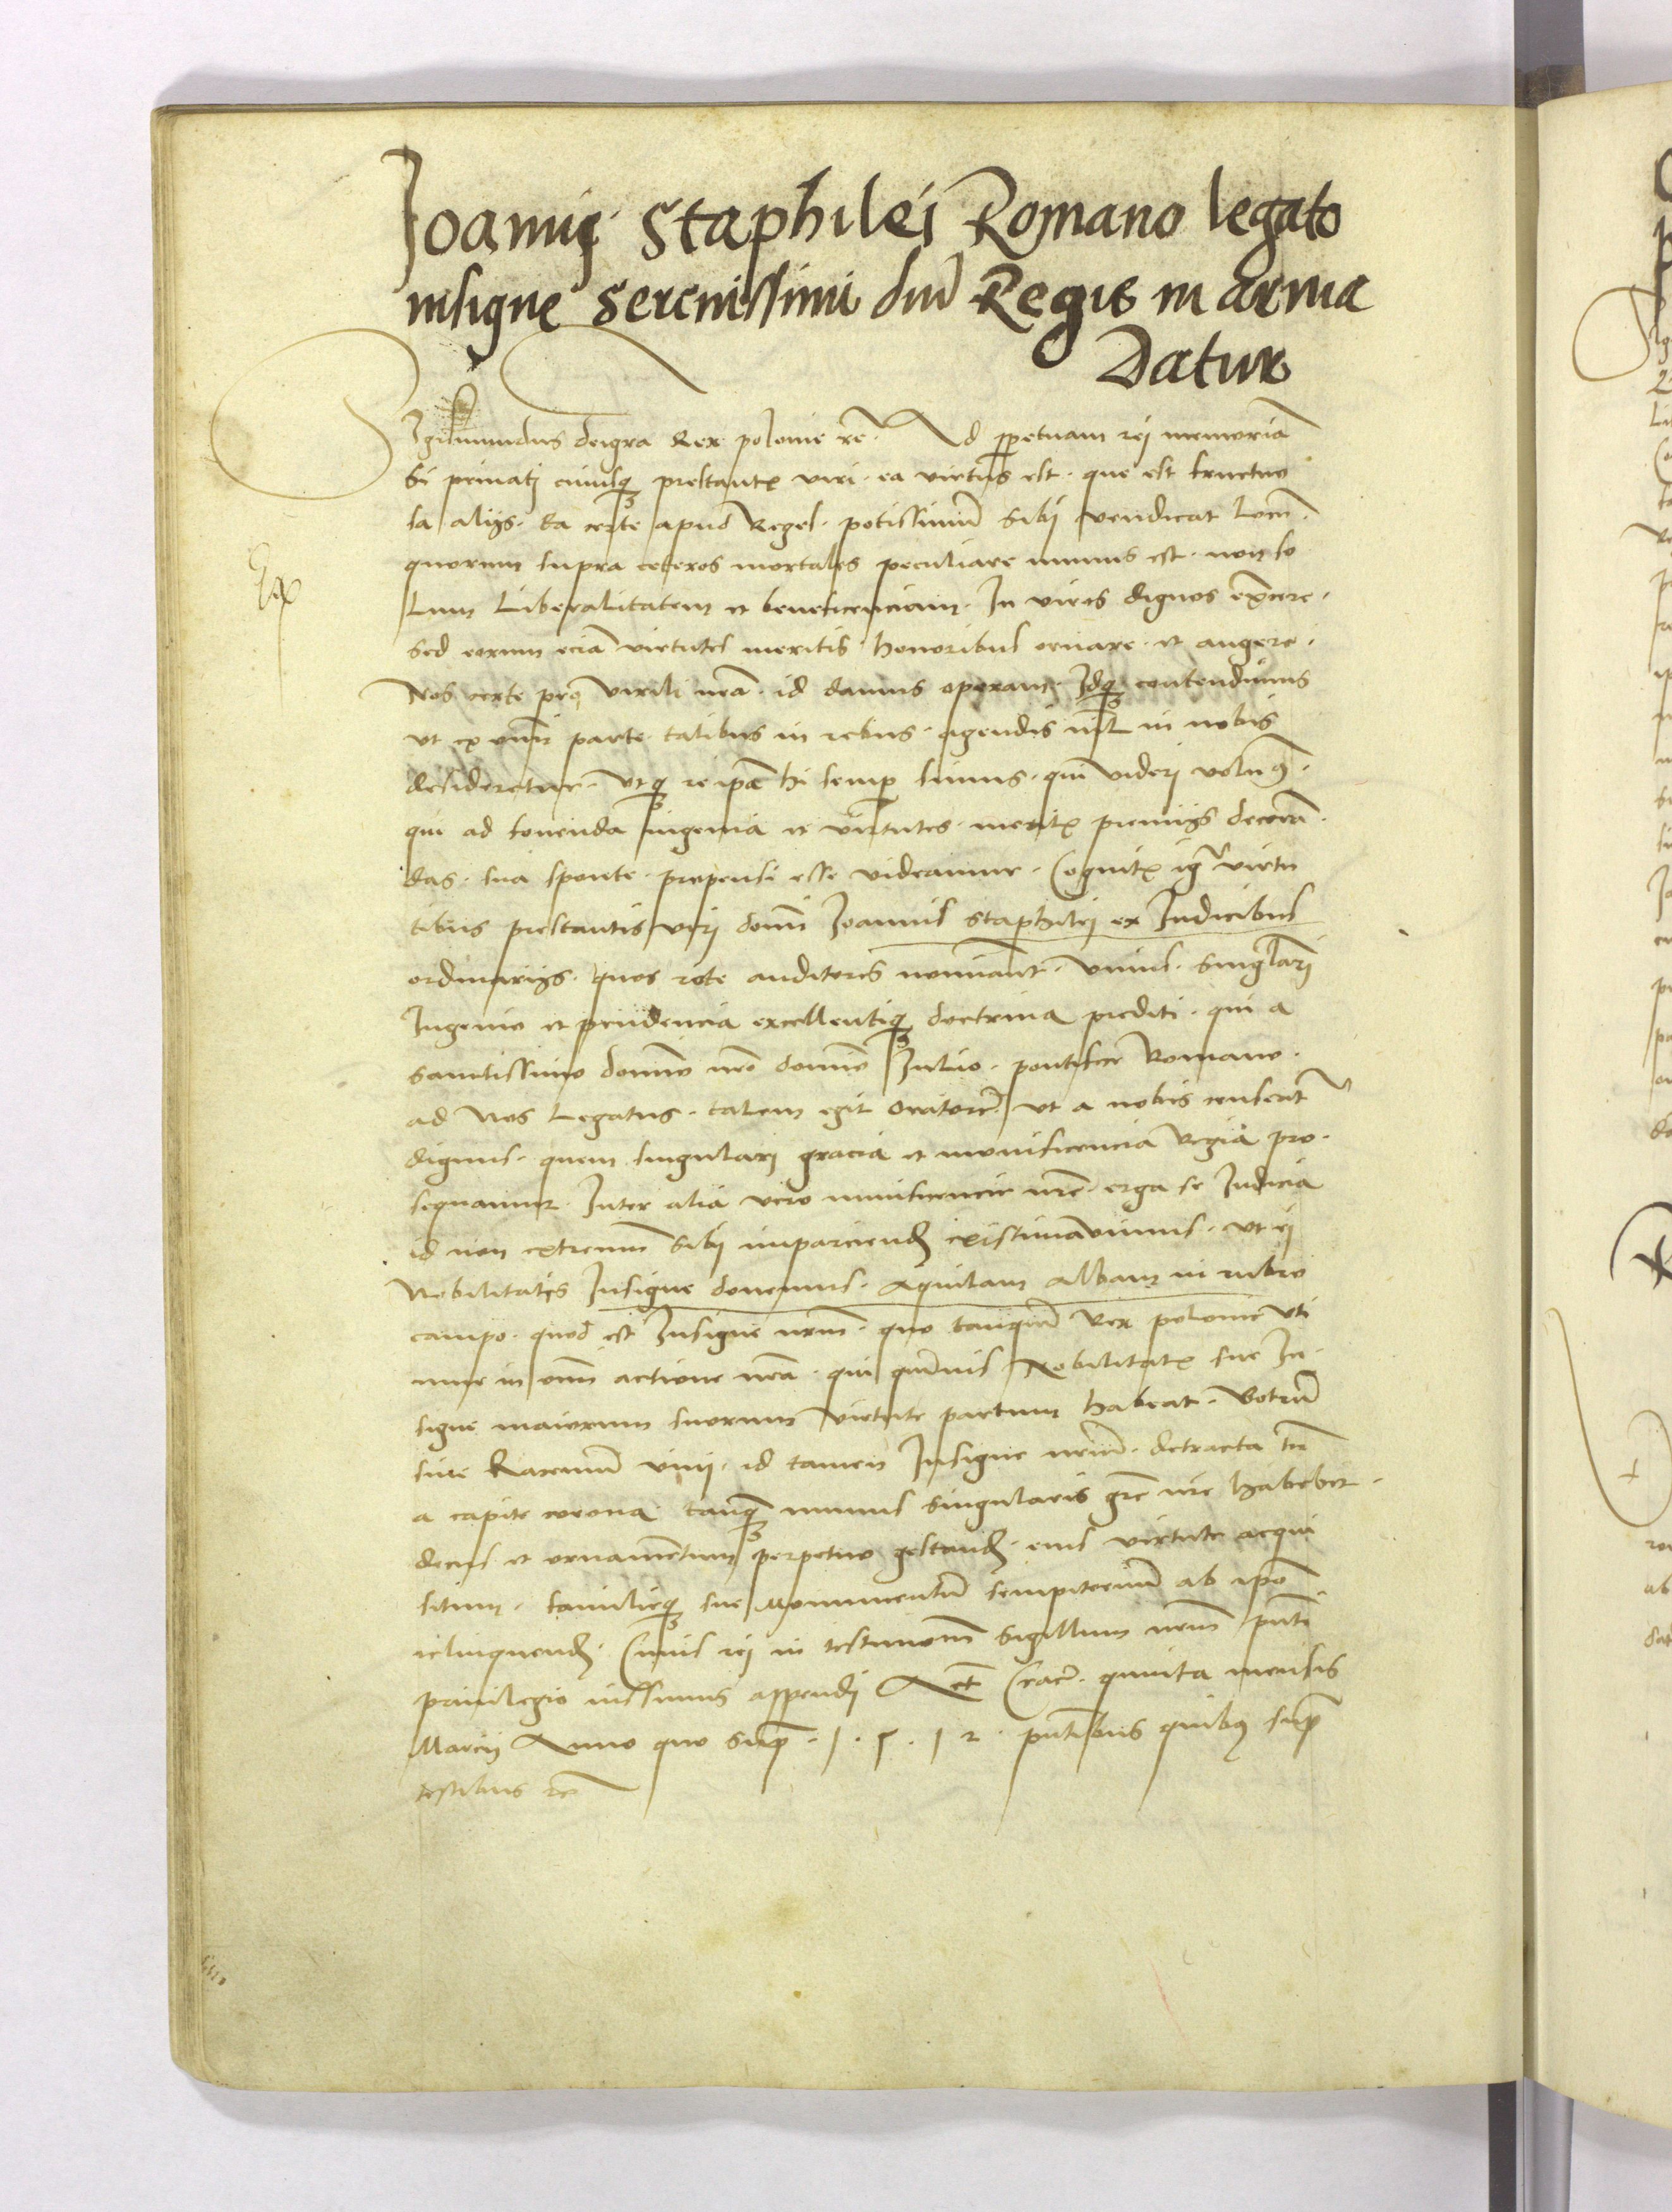 Joannis Staphilei Romano legato
insigne serenissimi dnī Regis in arma
Datur
Sigismundus dei gra Rex polonie rc. Ad ppetuam rei memoriā
Si privati cuiusq prestantꝭ viri. ea virtus est. que est fructuo
sa alijs. Ea certe apud Reges. potissimū sibi vendicat locū.
quorum supra ceteros mortales peculiare munus est. non so
lum Liberalitatem et beneficenciam. In viros dignos exercere.
sed eorum eciā virtutes meritis honoribus ornare. et augere.
Nos certe pro virili nrā. id damus operam. Idq contendimus
ut ex omī parte talibus in rebus. agendis nil in nobis
desideretur. utq re ipā hi semp simus. qui videri volumꝰ.
qui ad fovenda ingenia et virtutes. meritꝭ premijs decorā
das. sua sponte. propensi esse videamur. Cognitꝭ igr virtu
tibus prestantis viri domī Joannis Staphilei ex Iudicibus
ordinarijs. quos rote auditores nominant. unius. singlari
Ingenio et prudencia excellentiq doctrina prediti. qui a
sanctissimo domīo nrō domīo Julio. pontifice Romano.
ad Nos Legatus. talem egit oratorē. ut a nobis censeat
dignus. quem singulari gracia et munificencia Regia pro
sequamur. Inter alia vero munificencie nrē. erga se Iudicia
id non extremum sibi imparciendū existimavimus. ut ei
Nobilitatis Insigne donemus. Aquilam albam in rubro
campo. quod est Insigne nrm̄. quo tanquā Rex polonie uti
mur in omī actione nrā. qui quāvis Nobilitatꝭ sue In
signe maiorum suorum virtute partum habeat. Botrū
sive Racemū vini. id tamen Insigne nrm̄. detracta tn̄
a capite corona. tanq munus singularis grē nrē habebit.
decus et ornamentum perpetuo gestandū. eius virtute acqui
situm. familieq sue Monumentū sempiternū ab ipō
relinquendū. Cuius rei in testimoniū Sigillum nrm̄ pn̄ti
privilegio iussimus appendi Act Crac. quinta mensis
Marcij Anno quo sup. 1.5.12. pn̄tibus quibꝰ sup
testibus rc